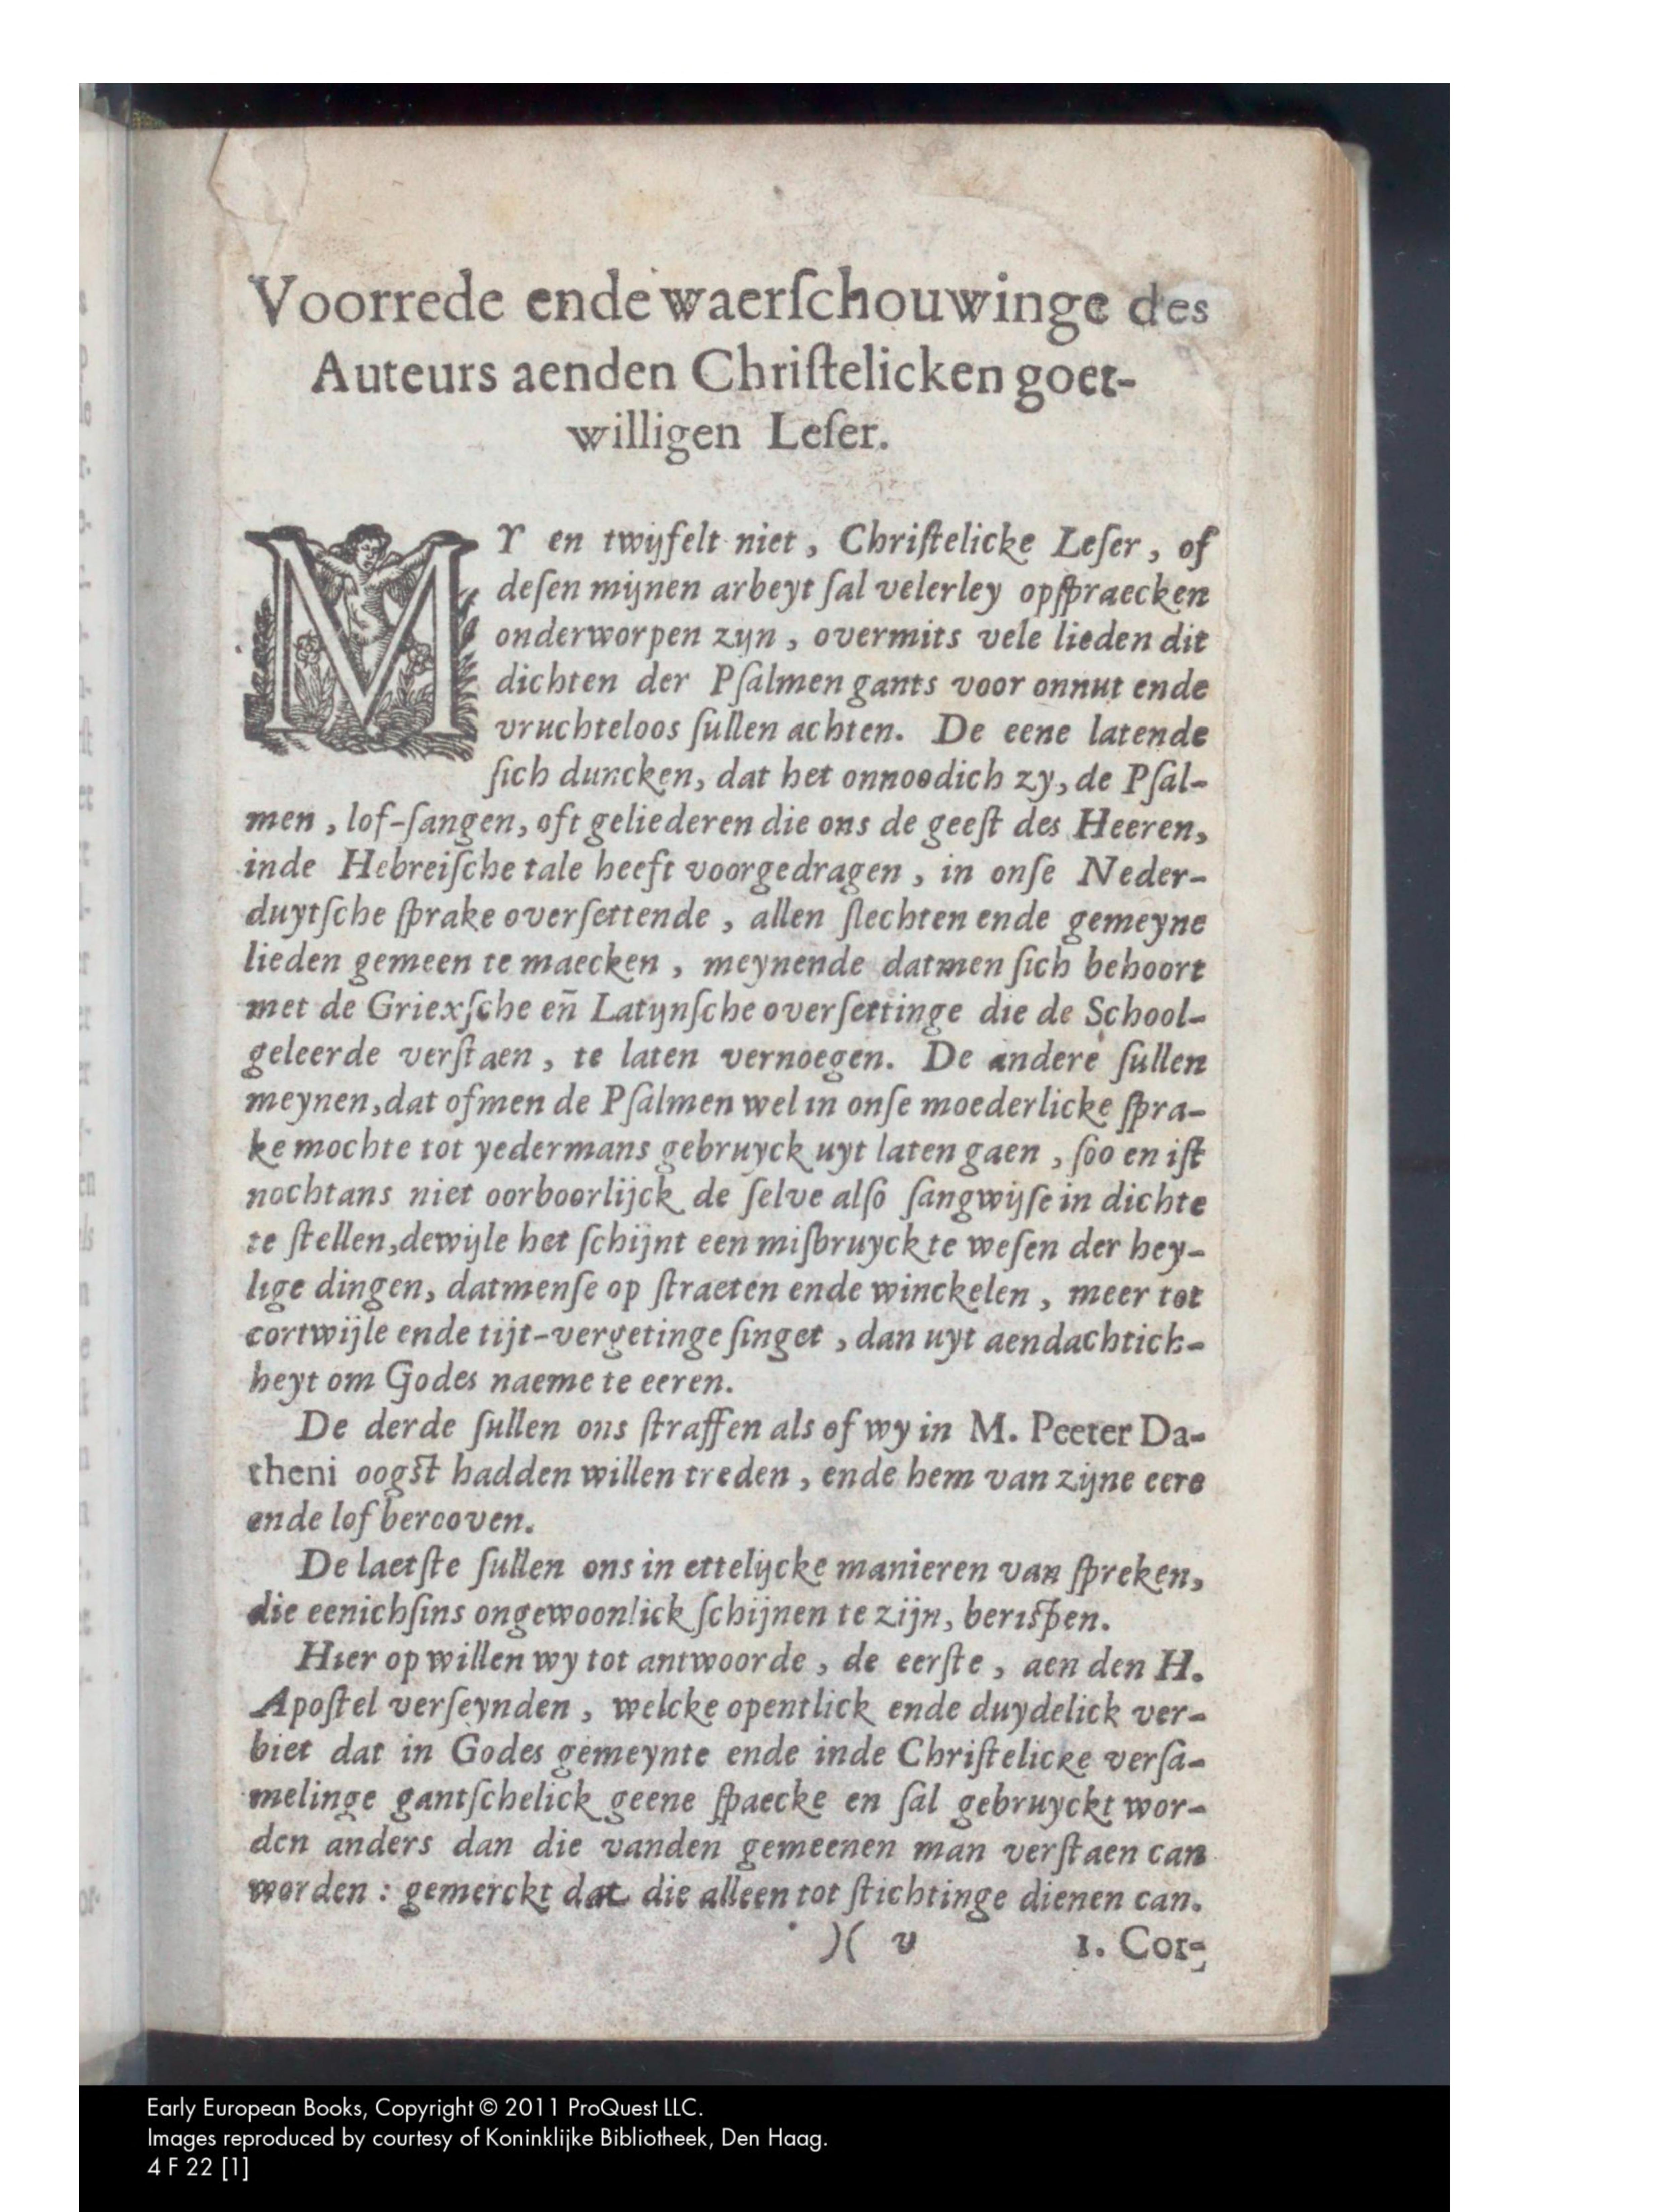 Voorrede ende waerſchouwinge des
Auteurs aenden Chriſtelicken goet-
willigen Leſer.
MY en twijfelt niet, Chriſtelicke Leſer, of
deſen mijnen arbeyt ſal velerley opſpraecken
onderworpen zijn, overmits vele lieden dit
dichten der Pſalmen gants voor onnut ende
vruchteloos ſullen achten. De eene latende
ſich duncken, dat het onnoodich zy, de Pſal-
men, lof-ſangen, oft geliederen die ons de geeſt des Heeren,
inde Hebreiſche tale heeft voorgedragen, in onſe Neder-
duytſche ſprake overſettende, allen ſlechten ende gemeyne
lieden gemeen te maecken, meynende datmen ſich behoort
met de Griexſche en̄ Latijnſche overſettinge die de School-
geleerde verſtaen, te laten vernoegen. De andere ſullen
meynen, dat ofmen de Pſalmen wel in onſe moederlicke ſpra-
ke mochte tot yedermans gebruyck uyt laten gaen, ſoo en iſt
nochtans niet oorboorlijck de ſelve alſo ſangwijſe in dichte
te ſtellen, dewijle het ſchijnt een miſbruyck te weſen der hey-
lige dingen, datmenſe op ſtraeten ende winckelen, meer tot
cortwijle ende tijt-vergetinge ſinget, dan uyt aendachtich-
heyt om Godes naeme te eeren.
De derde ſullen ons ſtraffen als of wy in M. Peeter Da-
theni oogſt hadden willen treden, ende hem van zijne eere
ende lof berooven.
De laetſte ſullen ons in ettelijcke manieren van ſpreken,
die eenichſins ongewoonlick ſchijnen te zijn, beriſpen.
Hier op willen wy tot antwoorde, de eerſte, aen den H.
Apoſtel verſeynden, welcke opentlick ende duydelick ver-
biet dat in Godes gemeynte ende inde Chriſtelicke verſa-
melinge gantſchelick geene ſpaecke en ſal gebruyckt wor-
den anders dan die vanden gemeenen man verſtaen can
worden: gemerckt dat die alleen tot ſtichtinge dienen can.
)( v 1. Cor-
Early European Books, Copyright © 2011 ProQuest LLC.
Images reproduced by courtesy of Koninklijke Bibliotheek, Den Haag.
4 F 22 [1]